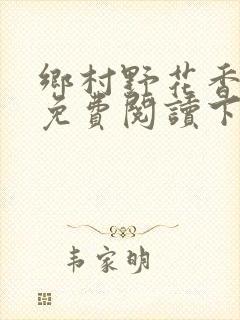 鄉村野花香
免費閱讀下
韦家明